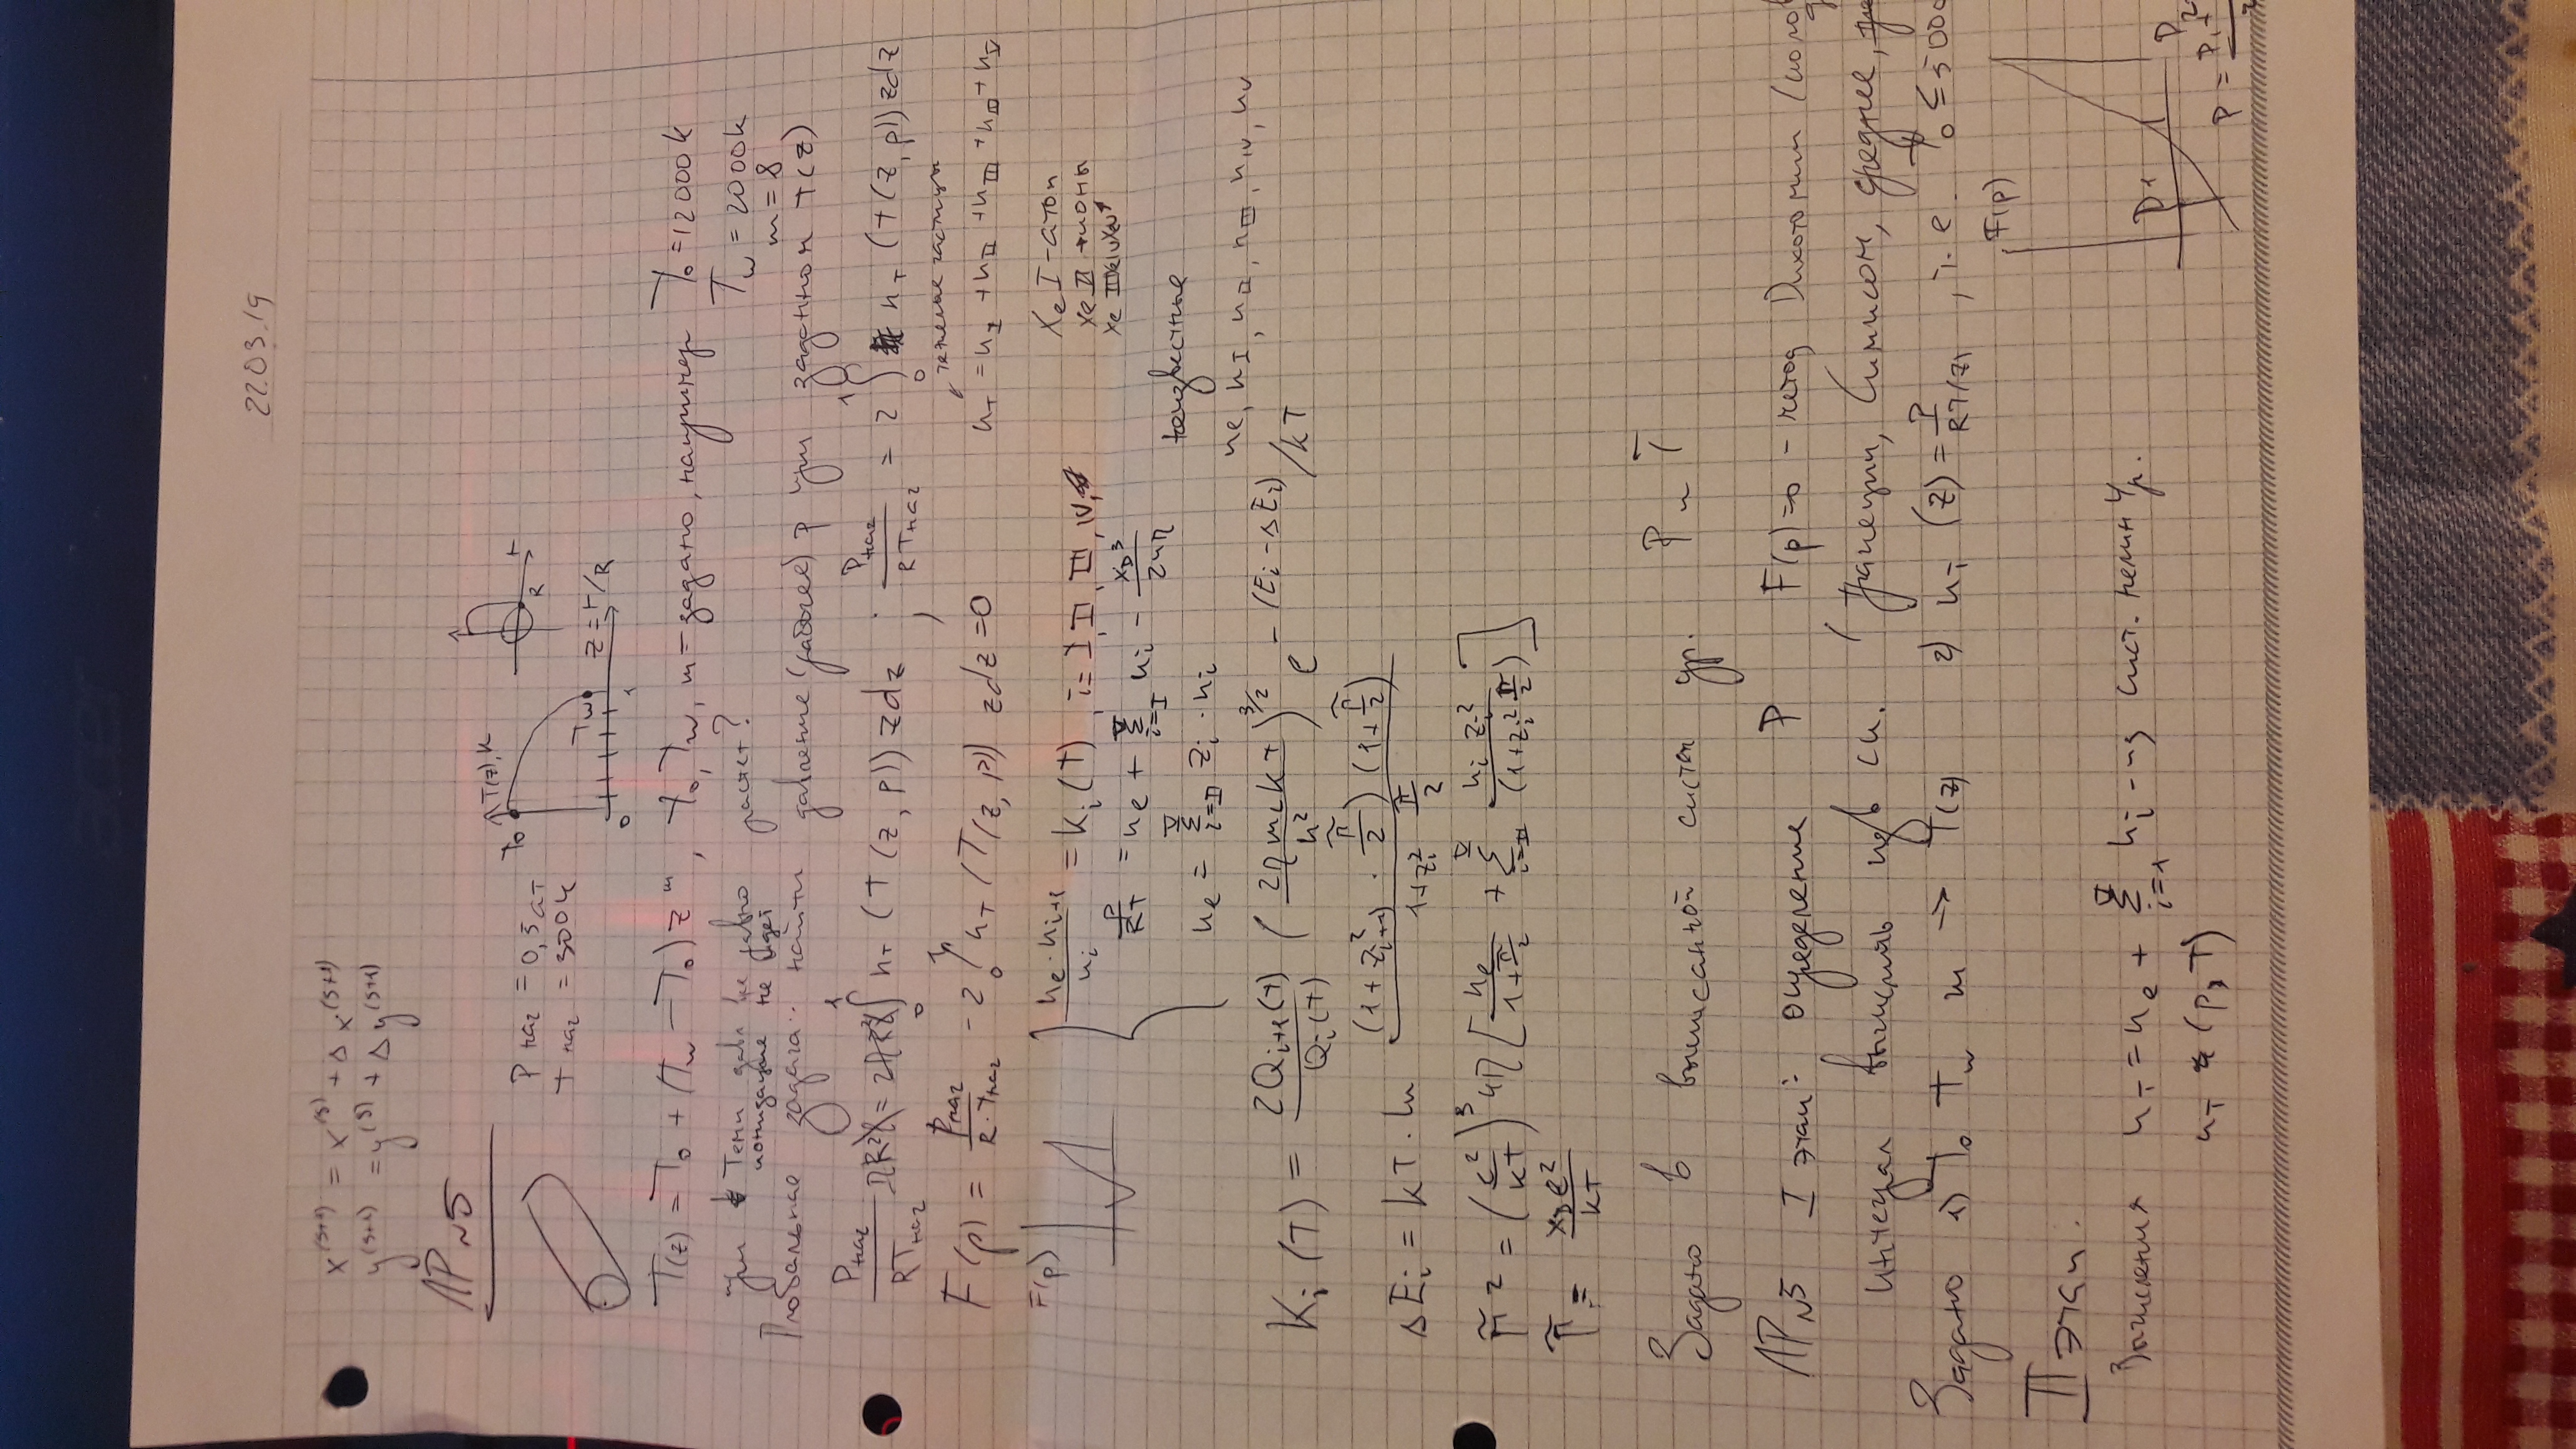 22.03.19
x^(s+1) = x^(s) + Δ x^(s+1)
y^(s+1) = y^(s) + Δ y^(s+1)
ЛР №5
P нач = 0,5 ат
T нач = 300 K
T₀ T(z), K
T_w z = r/R
0 1
r
R
T(z) = T₀ + (T_w − T₀) z^m, T₀, T_w, m – задано, например T₀ = 12000 K
T_w = 2000 K
m = 8
при Темп давл все равно растет?
ионизация не идет
Глобальная задача: найти давление (рабочее) p при заданном T(z)
P нач / RT нач πR²l = 2πR²l ∫₀¹ n_т (T(z, p)) z dz ; P нач / RT нач = 2 ∫₀¹ n_т (T(z, p)) z dz
тяжелые частицы
F(p) = P нач / R·T нач − 2 ∫₀¹ n_т (T(z, p)) z dz = 0 n_т = n_I + n_II + n_III + n_IV + n_V
F(p)
n_e · n_i+1 / n_i = K_i (T), i = I, II, III, IV
Xe I – атом
Xe II – ионы
Xe III Xe IV Xe V
P / RT = n_e + Σ_{i=I}^{V} n_i − x_D³ / 24π
n_e = Σ_{i=II}^{V} z_i · n_i
неизвестные
n_e, n_I, n_II, n_III, n_IV, n_V
K_i (T) = 2Q_i+1(T) / Q_i(T) (2π m_e kT / h²)^3/2 e^−(E_i − ΔE_i)/kT
ΔE_i = kT · ln (1 + z²_i+1 · Г̃/2) (1 + Г̃/2) / 1 + z_i² Г/2
Г̃² = (e² / kT)³ 4π [ n_e / 1 + Г/2 + Σ_{i=II}^{V} n_i z_i² / (1 + z_i² Г/2) ]
Г̃ = x_D e² / kT
Задано в выписанной систем ур. P и T
ЛР №5 I этап: определение P F(p)=0 – метод Дихотомии
интеграл вычислять (Трапеции, Симпсон, среднее,
Задано 1) T₀ T_w m → T(z) 2) n_т (z) = P / RT(z), т.е. T₀ ≤ 5000
F(p)
II этап.
Вычисления n_т = n_e + Σ_{i=1}^{V} n_i – из сист. нелин ур.
n_т (p, T)
P1 P2
P = P₁ + P₂ / 2